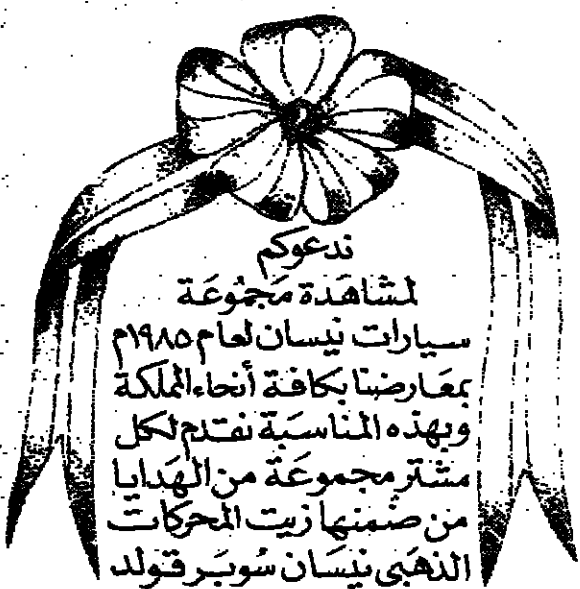 ندعوكم
لمشاهدة مَجمُوعَة
سيارات نيسان لعام ١٩٨٥م
بمعَارضنا بكافة أنحاء المملكة
وبهذه المناسَبة نقدم لكل
مشتر مجموعَة من الهَدايا
من ضمنها زيت المحركات
الذهَبي نيسَان سُوبَر قولد